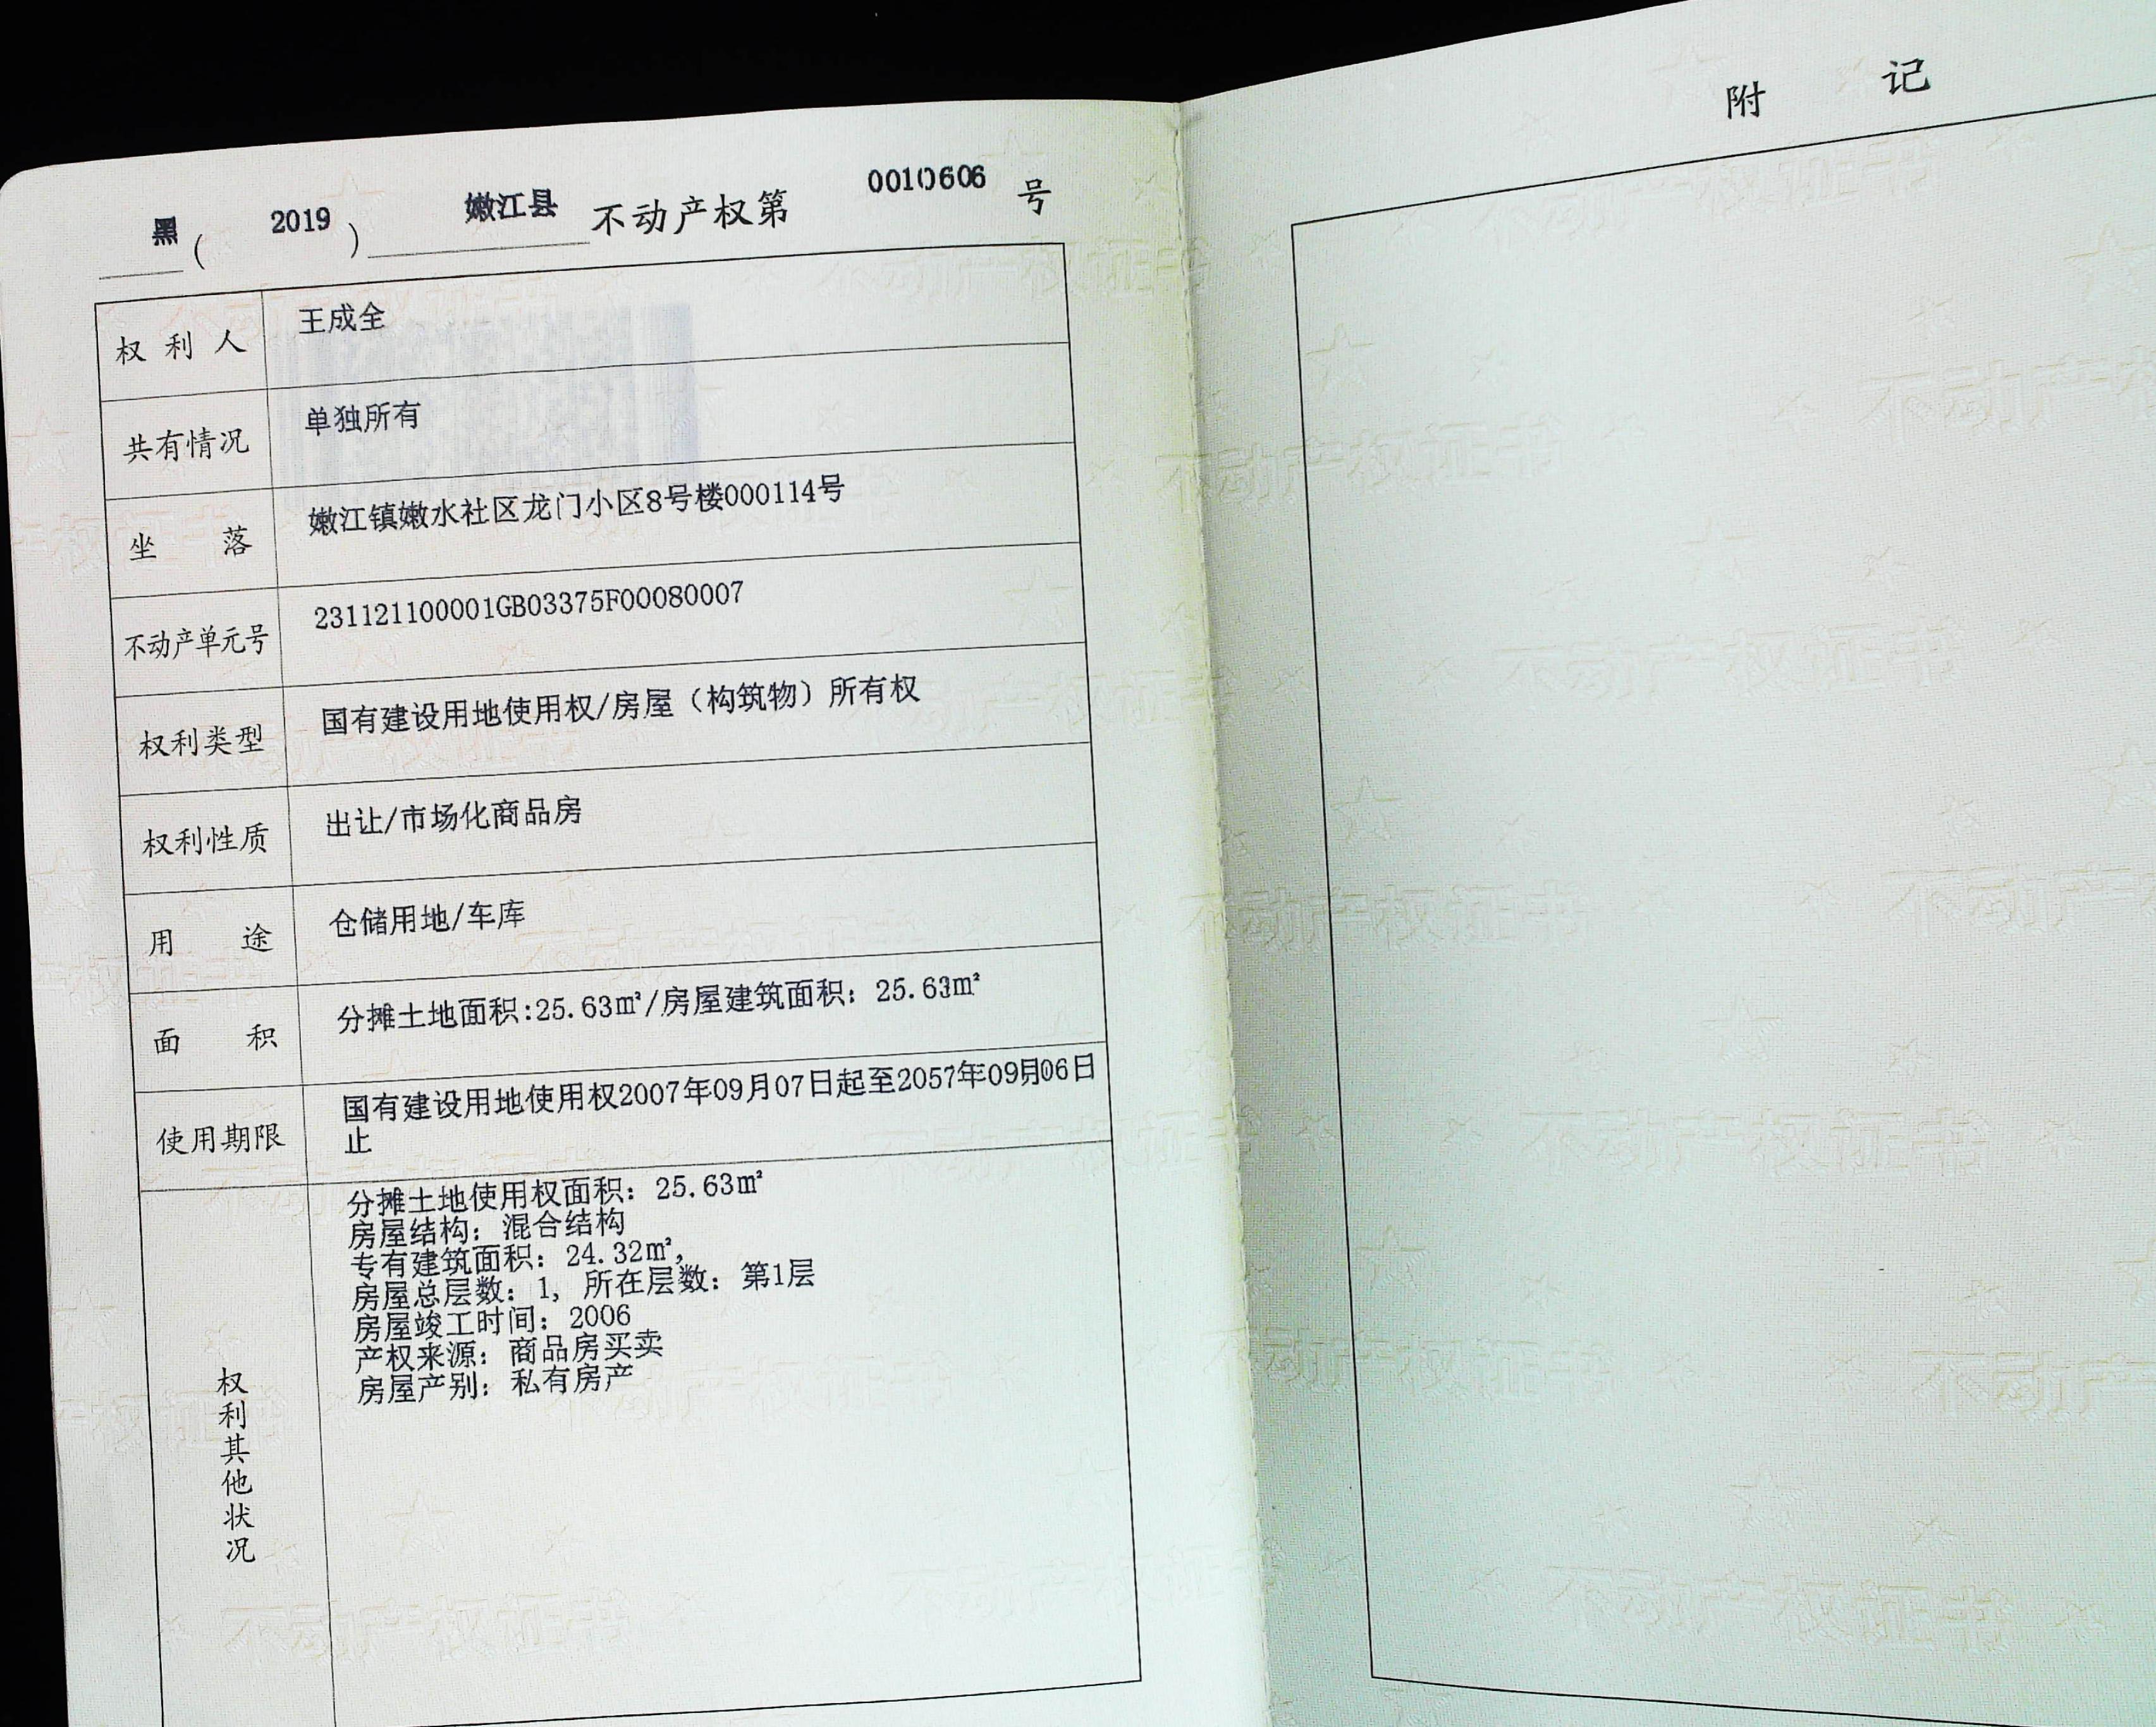 黑（2019）嫩江县不动产权第0010606号
权利人 王成全
共有情况 单独所有
坐落 嫩江镇嫩水社区龙门小区8号楼000114号
不动产单元号 231121100001GB03375F00080007
权利类型 国有建设用地使用权/房屋（构筑物）所有权
权利性质 出让/市场化商品房
用途 仓储用地/车库
面积 分摊土地面积:25.63㎡/房屋建筑面积：25.63㎡
使用期限 国有建设用地使用权2007年09月07日起至2057年09月06日
止
权利其他状况
分摊土地使用权面积：25.63㎡
房屋结构：混合结构
专有建筑面积：24.32㎡，
房屋总层数：1，所在层数：第1层
房屋竣工时间：2006
产权来源：商品房买卖
房屋产别：私有房产
附记